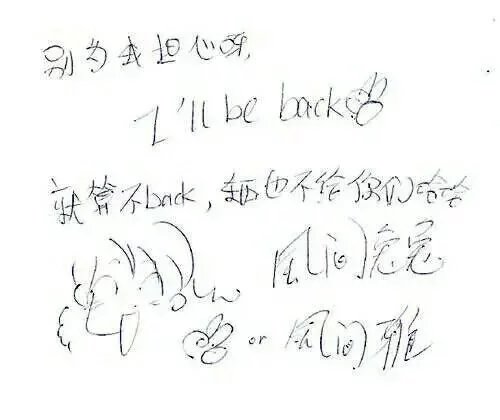 别为我担心呀,
I'll be back
就算不back, 也不给你们哈哈
风间兔兔
or 风间雅